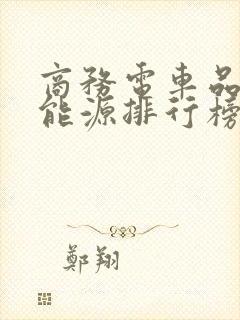 商務電車品
能源排行榜
鄭翔